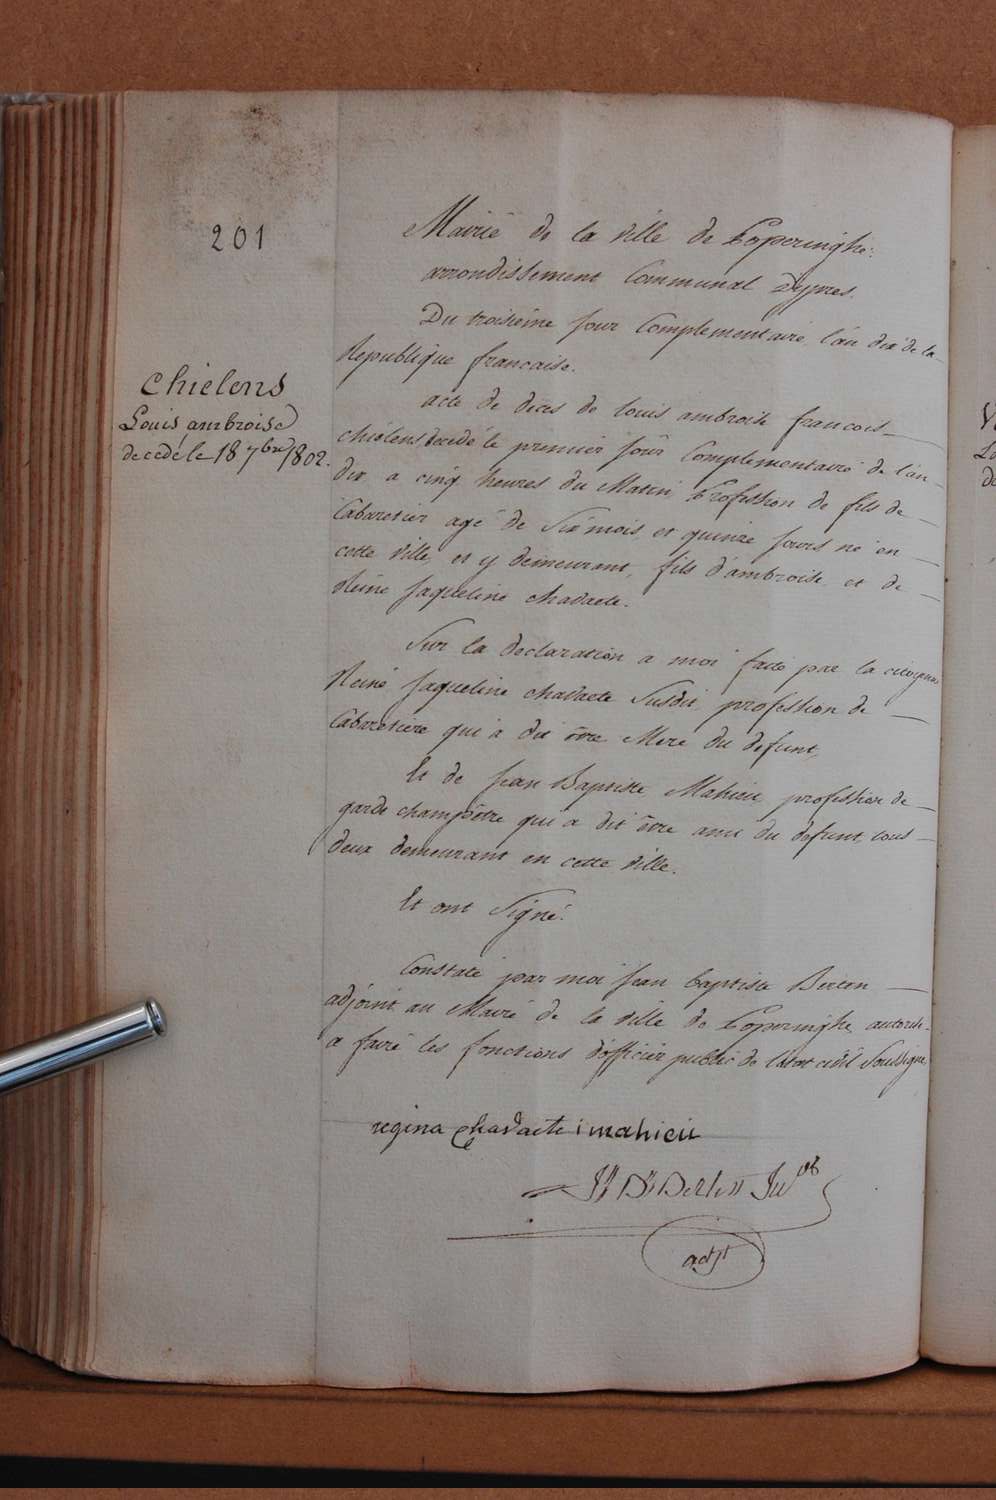 201
Chielens
Louis ambroise
decedé le 18 7bre 1802.
Mairie de la ville de Poperinghe:
arrondissement Communal d'ypres.
Du troisieme jour Complementaire l'an dix de la
Republique francaise.
acte de deces de louis ambroise francois
chielens decedé le premier jour Complementaire de l'an
dix a cinq heures du Matin Profession de fils de
Cabaretier agé de Six mois et quinze jours né en
cette ville, et y demeurant, fils d'ambroise et de
Reine jaqueline chavaete.
Sur la declaration a moi faite par la citoyenne
Reine jaqueline chavaete Susdit profession de
Cabaretiere qui a dit être Mere du defunt,
Et de jean Baptiste Mahieu profession de
garde champêtre qui a dit être ami du defunt, tous
deux demeurant en cette ville.
Et ont Signé.
Constaté par moi jean baptiste Berten
adjoint au Maire de la ville de Poperinghe autorisé
a faire les fonctions d'officier public de l'etat civil Soussigné
regina Chavaete i mahieu
Bte Berten
adjt
V
Lo
de